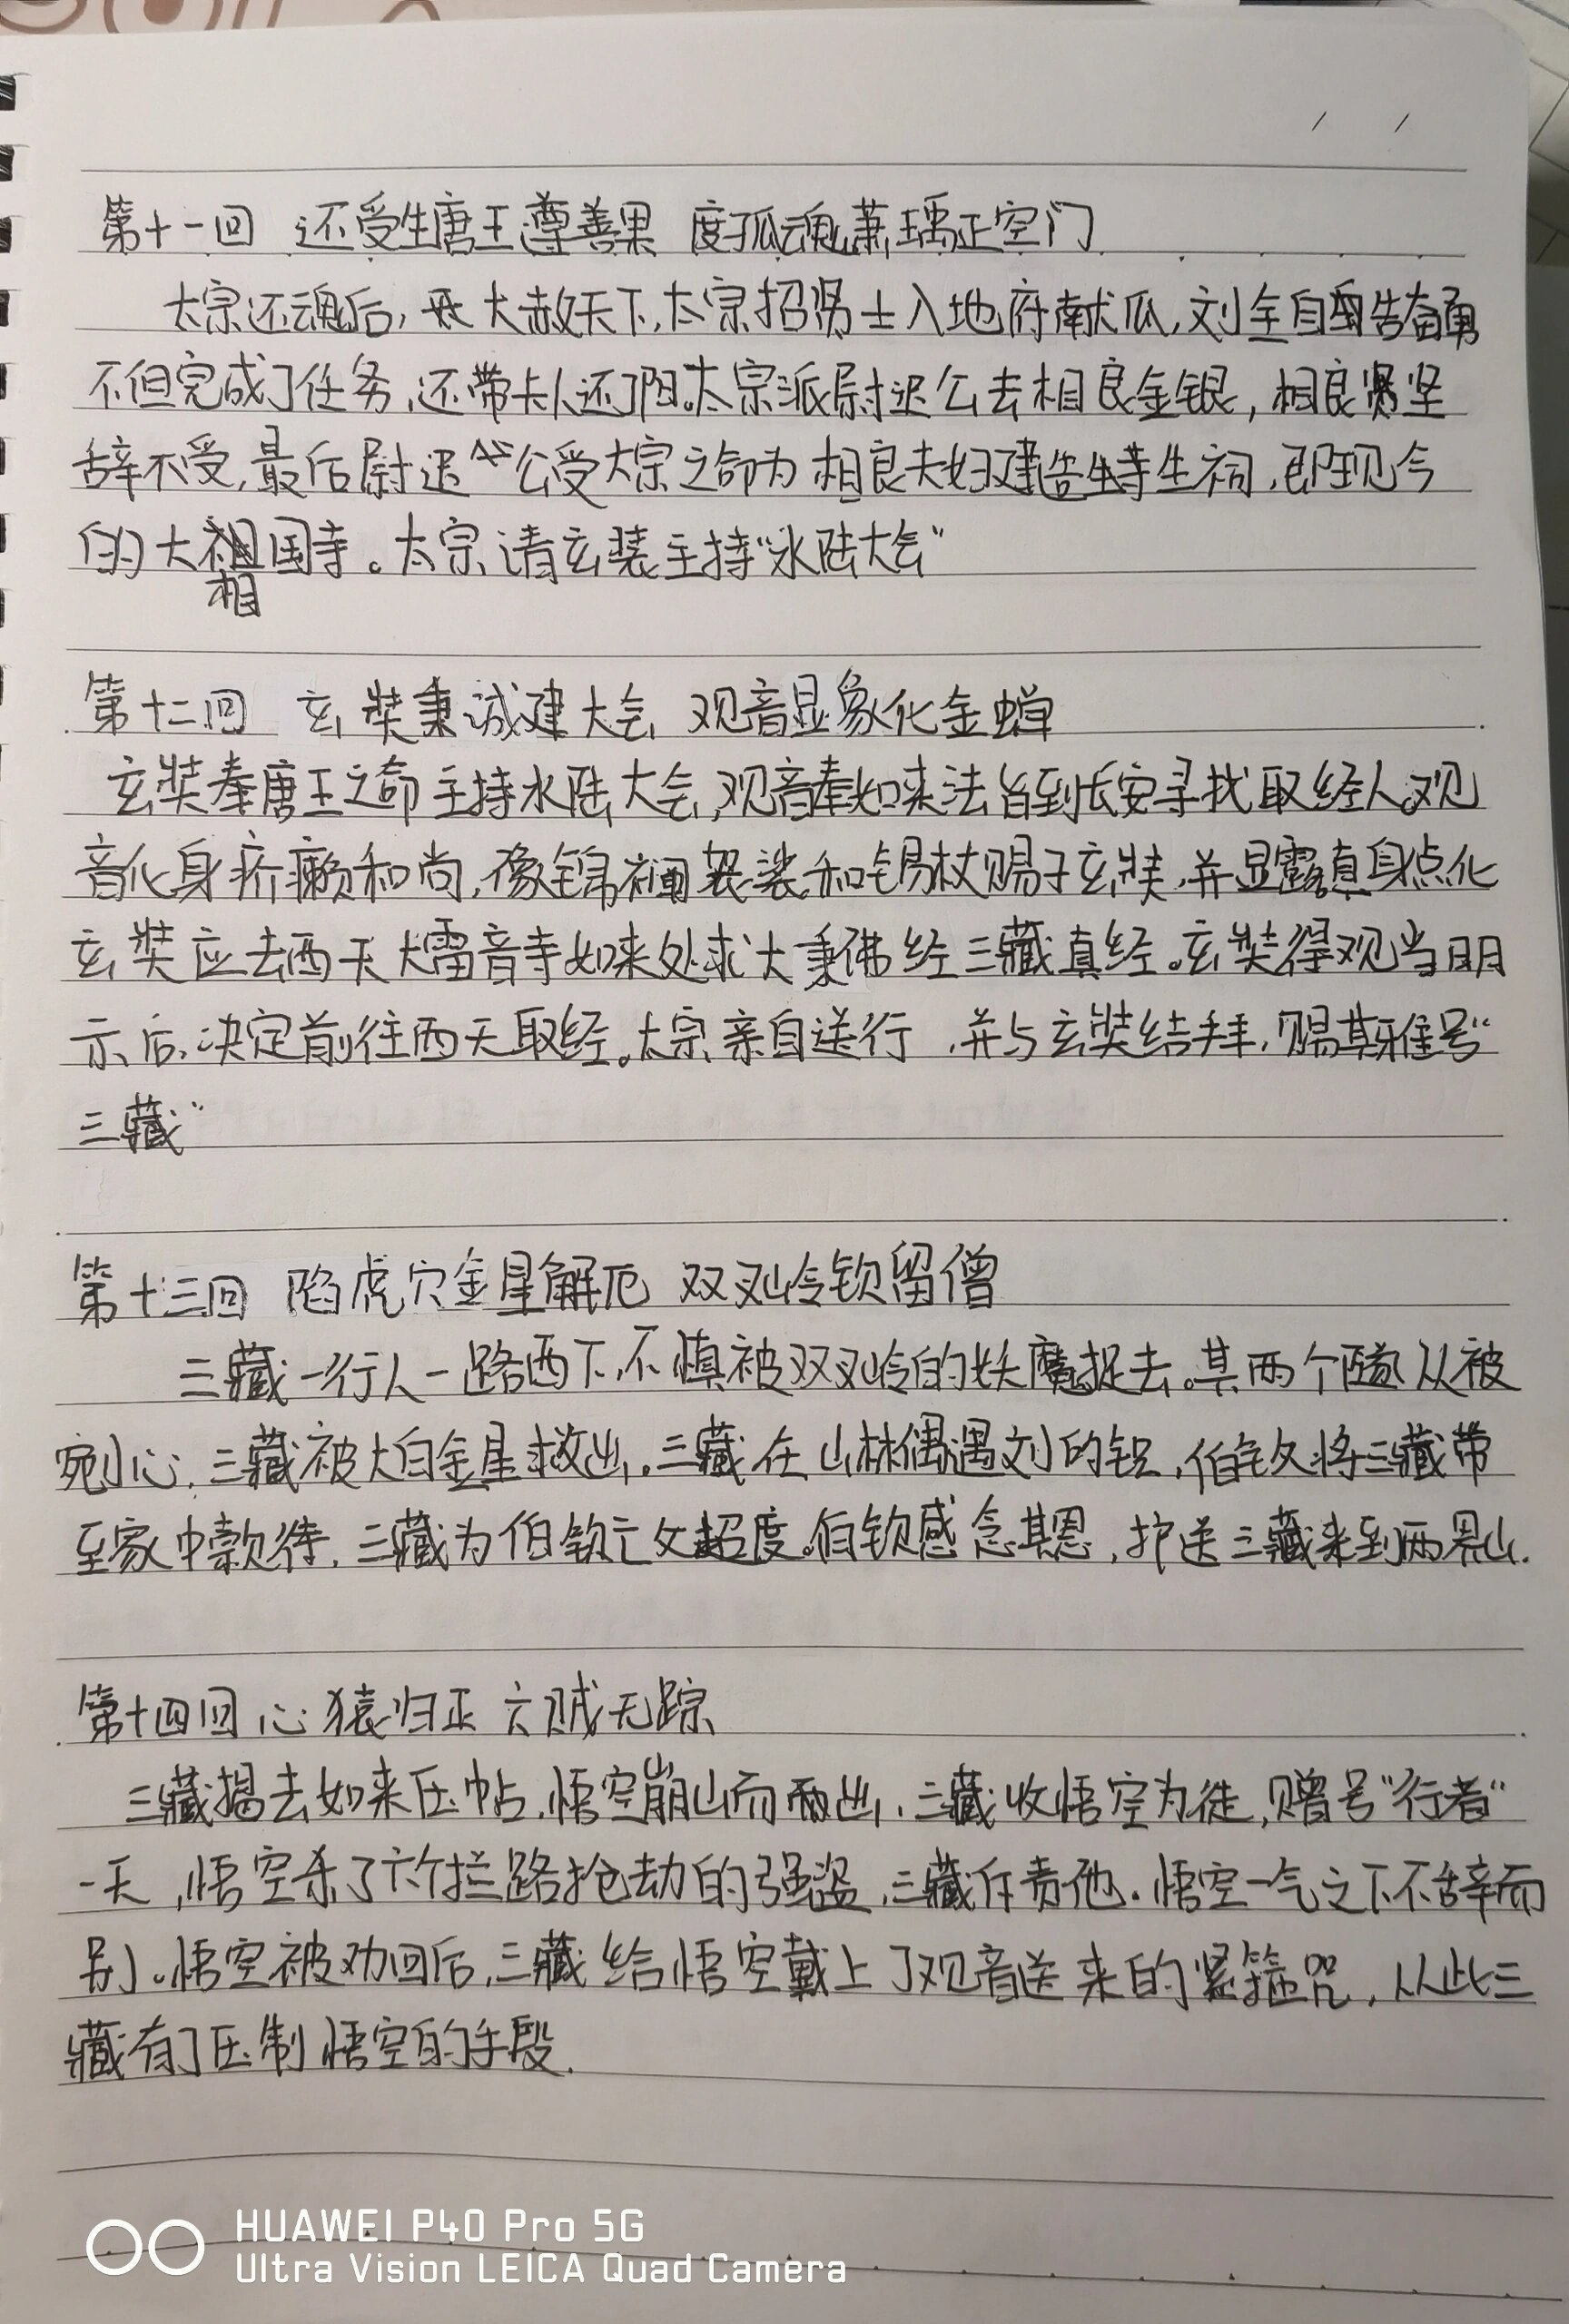 第十一回 还受生唐王遵善果 度孤魂萧瑀正空门
太宗还魂后,大赦天下,太宗招贤士入地府献瓜,刘全自告奋勇
不但完成了任务,还带夫人还了阳。太宗派尉迟公去相良金银,相良坚
辞不受,最后尉迟公受太宗之命为相良夫妇建造生寺生祠,即现今
的大相国寺。太宗请玄装主持“水陆大会”
第十二回 玄奘秉诚建大会 观音显象化金蝉
玄奘奉唐王之命主持水陆大会,观音奉如来法旨到长安寻找取经人。观
音化身疥癞和尚,像锦襕袈裟和锡杖赐于玄奘,并显露真身点化
玄奘应去西天大雷音寺如来处求大乘佛经三藏真经。玄奘得观当明
示后,决定前往西天取经。太宗亲自送行,并与玄奘结拜,赐其雅号“
三藏”
第十三回 陷虎穴金星解厄 双叉岭钦留僧
三藏一行人一路西下,不慎被双叉岭的妖魔捉去。其两个随从被
剜心,三藏被太白金星救出。三藏在山林偶遇刘的钦,伯钦将三藏带
至家中款待,三藏为伯钦亡父超度。伯钦感念其恩,护送三藏来到两界山.
第十四回 心猿归正 六贼无踪
三藏揭去如来压帖,悟空崩山而出,三藏收悟空为徒,赠号“行者“
一天,悟空杀了六个拦路抢劫的强盗,三藏斥责他.悟空一气之下不辞而
别。悟空被劝回后,三藏给悟空戴上了观音送来的紧箍咒,从此三
藏有了压制悟空的手段.
HUAWEI P40 Pro 5G
Ultra Vision LEICA Quad Camera